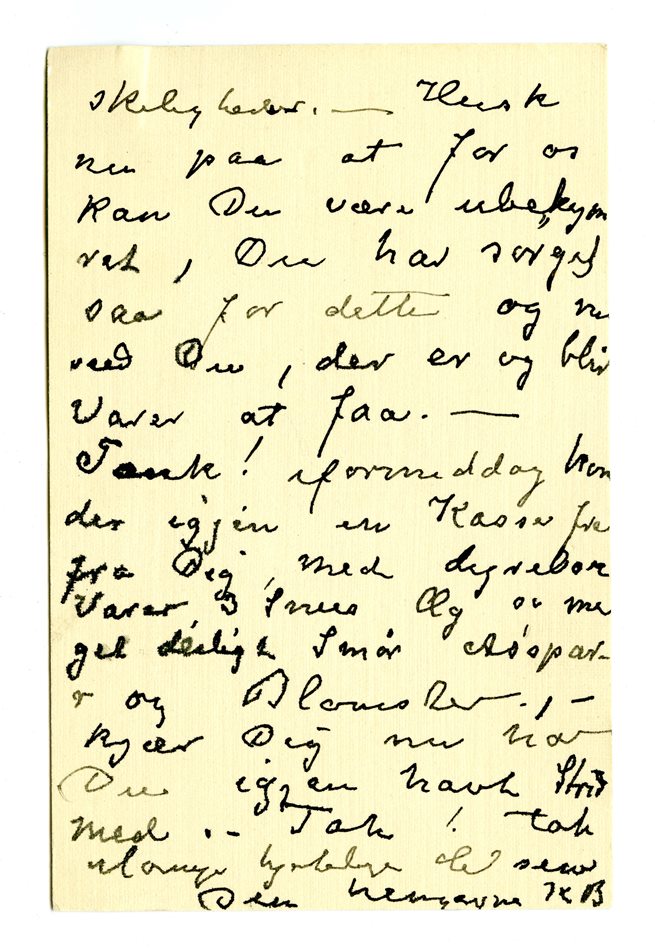 skeligheder. — Husk
nu paa at for os
kan Du være ubekym
ret, Du har sørget
saa for dette og nu
ved Du, der er og blir
Varer at faa. —
Tænk! iformiddag kom
der igjen en Kasse fra
fra Dig, med dyrebare
Varer 3 Snes Æg og me
get deiligt Smør Asspar-
r og Blomster., –
kjær Dig nu har
Du igjen havt Strid
med. – Tak! tak
mange hjertelige
Din hengivne